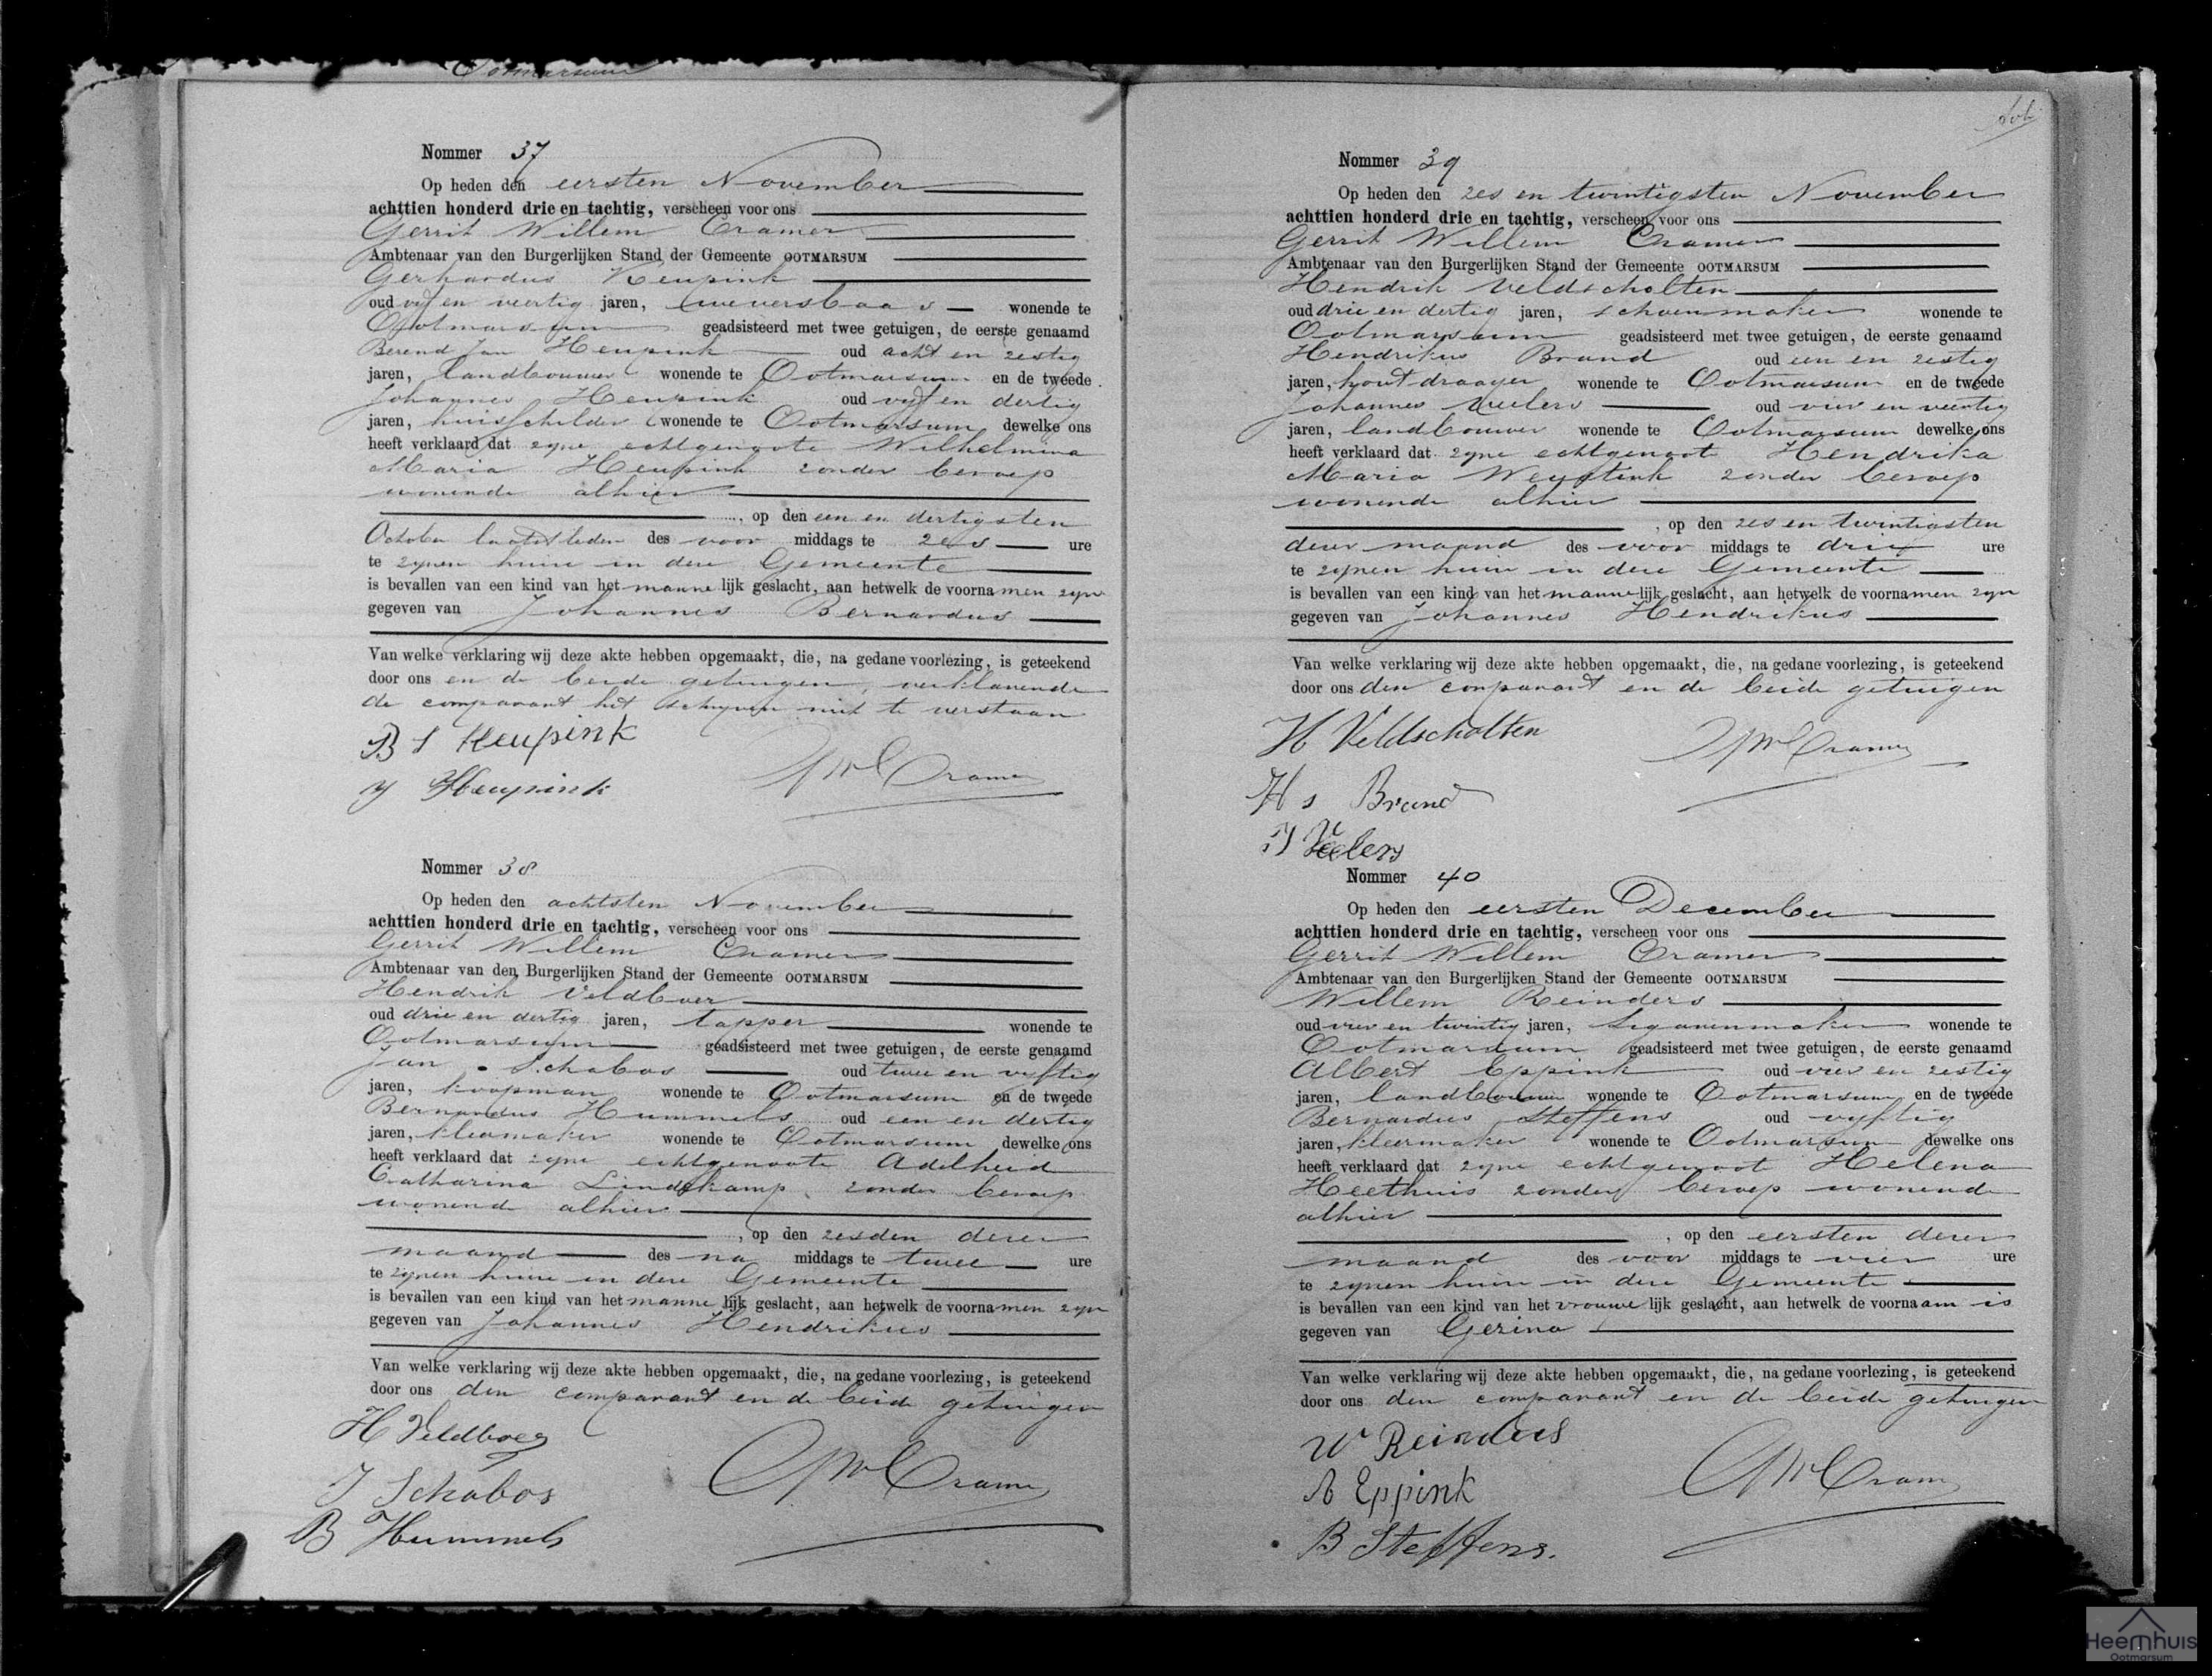 Ootmarsum
Nommer 37
Op heden den eersten November
achttien honderd drie en tachtig, verscheen voor ons
Gerrit Willem Cramer
Ambtenaar van den Burgerlijken Stand der Gemeente OOTMARSUM
Gerhardus Heupink
oud vijf en veertig jaren, weversbaas wonende te
Ootmarsum geadsisteerd met twee getuigen, de eerste genaamd
Berend Jan Heupink oud acht en zestig
jaren, landbouwer wonende te Ootmarsum en de tweede
Johannes Heupink oud vijf en dertig
jaren, huisschilder wonende te Ootmarsum dewelke ons
heeft verklaard dat zyne echtgenoote Wilhelmina
Maria Heupink zonder beroep
wonende alhier
, op den een en dertigsten
October laatstleden des voor middags te zes ure
te zynen huize in deze Gemeente
is bevallen van een kind van het mannelijk geslacht, aan hetwelk de voornamen zyn
gegeven van Johannes Bernardus
Van welke verklaring wij deze akte hebben opgemaakt, die, na gedane voorlezing, is geteekend
door ons en de beide getuigen, verklarende
de comparant het schryven niet te verstaan
B J Heupink
J Heupink
GW Cramer
Nommer 38
Op heden den achtsten November
achttien honderd drie en tachtig, verscheen voor ons
Gerrit Willem Cramer
Ambtenaar van den Burgerlijken Stand der Gemeente OOTMARSUM
Hendrik Veldboer
oud drie en dertig jaren, tapper wonende te
Ootmarsum geadsisteerd met twee getuigen, de eerste genaamd
Jan Schabos oud twee en vyftig
jaren, koopman wonende te Ootmarsum en de tweede
Bernardus Hummels oud een en dertig
jaren, kleermaker wonende te Ootmarsum dewelke ons
heeft verklaard dat zyne echtgenoote Adelheid
Catharina Lindskamp, zonder beroep
wonende alhier
, op den zesden dezer
maand des na middags te twee ure
te zynen huize in deze Gemeente
is bevallen van een kind van het mannelijk geslacht, aan hetwelk de voornamen zyn
gegeven van Johannes Hendrikus
Van welke verklaring wij deze akte hebben opgemaakt, die, na gedane voorlezing, is geteekend
door ons den comparant en de beide getuigen
H Veldboer
J Schabos
B Hummels
GW Cramer
Nommer 39
Op heden den zes en twintigsten November
achttien honderd drie en tachtig, verscheen voor ons
Gerrit Willem Cramer
Ambtenaar van den Burgerlijken Stand der Gemeente OOTMARSUM
Hendrik Veldscholten
oud drie en dertig jaren, schoenmaker wonende te
Ootmarsum geadsisteerd met twee getuigen, de eerste genaamd
Hendrikus Brand oud een en zestig
jaren, houtdraayer wonende te Ootmarsum en de tweede
Johannes Veelers oud vier en veertig
jaren, landbouwer wonende te Ootmarsum dewelke ons
heeft verklaard dat zyne echtgenoot Hendrika
Maria zonder beroep
wonende alhier
, op den zes en twintigsten
dezer maand des voor middags te drie ure
te zynen huize in deze Gemeente
is bevallen van een kind van het mannelijk geslacht, aan hetwelk de voornamen zyn
gegeven van Johannes Hendrikus
Van welke verklaring wij deze akte hebben opgemaakt, die, na gedane voorlezing, is geteekend
door ons den comparant en de beide getuigen
H Veldscholten
Hs Brand
J Veelers
GW Cramer
Nommer 40
Op heden den eersten December
achttien honderd drie en tachtig, verscheen voor ons
Gerrit Willem Cramer
Ambtenaar van den Burgerlijken Stand der Gemeente OOTMARSUM
Willem Reinders
oud vier en twintig jaren, Sigarenmaker wonende te
Ootmarsum geadsisteerd met twee getuigen, de eerste genaamd
Albert Eppink oud vier en zestig
jaren, landbouwer wonende te Ootmarsum en de tweede
Bernardus Steffens oud vyftig
jaren, kleermaker wonende te Ootmarsum dewelke ons
heeft verklaard dat zyne echtgenoot Helena
Heethuis zonder beroep wonende
alhier
, op den eersten dezer
maand des voor middags te vier ure
te zynen huize in deze Gemeente
is bevallen van een kind van het vrouwelijk geslacht, aan hetwelk de voornaam is
gegeven van Gezina
Van welke verklaring wij deze akte hebben opgemaakt, die, na gedane voorlezing, is geteekend
door ons den comparant en de beide getuigen
W Reinders
A Eppink
B Steffens.
GW Cramer
Heemhuis
Ootmarsum